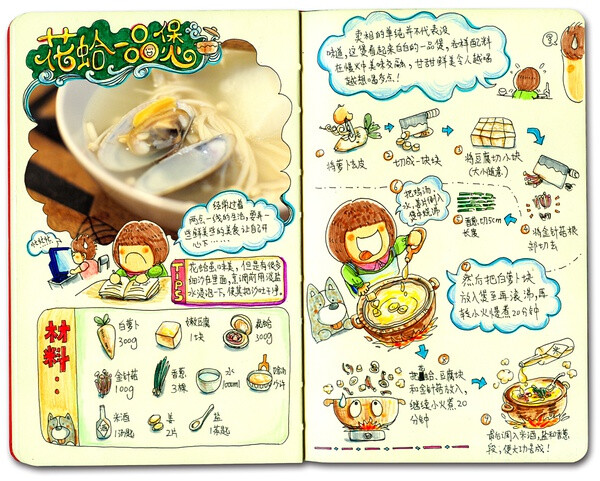 花蛤一品煲
经常过着
两点一线的生活,要弄一
些鲜美些的美食让自己开
心下……
忙忙忙..
TIPS
花蛤虽味美,但是有很多
细沙在里面,烹调前用淡盐
水浸泡一下,使其把沙吐干净.
材料:
白萝卜
300g
嫩豆腐
1块
花蛤
300g
金针菇
100g
香葱
3棵
水
1000ml
鸡汤
少许
米酒
1汤匙
姜
2片
盐
1茶匙
卖相的单纯并不代表没
味道,这煲看起来白白的一品煲,各样配料
在慢火中美味交融,甘甜鲜美令人越喝
越想喝多点!
①将萝卜去皮
②切成一块块
③将豆腐切小块
(大小随意)
④将金针菇根
部切去
⑤香葱切5cm
长度
⑥把鸡汤,
水,姜片倒入
煲中烧沸
⑦
然后把白萝卜块
放入煲至再滚沸,再
转小火慢煮20分钟
⑧
把花蛤、豆腐块
和金针菇放入,
继续小火煮20
分钟
⑨
最后调入米酒,盐和香葱
段,便大功告成!